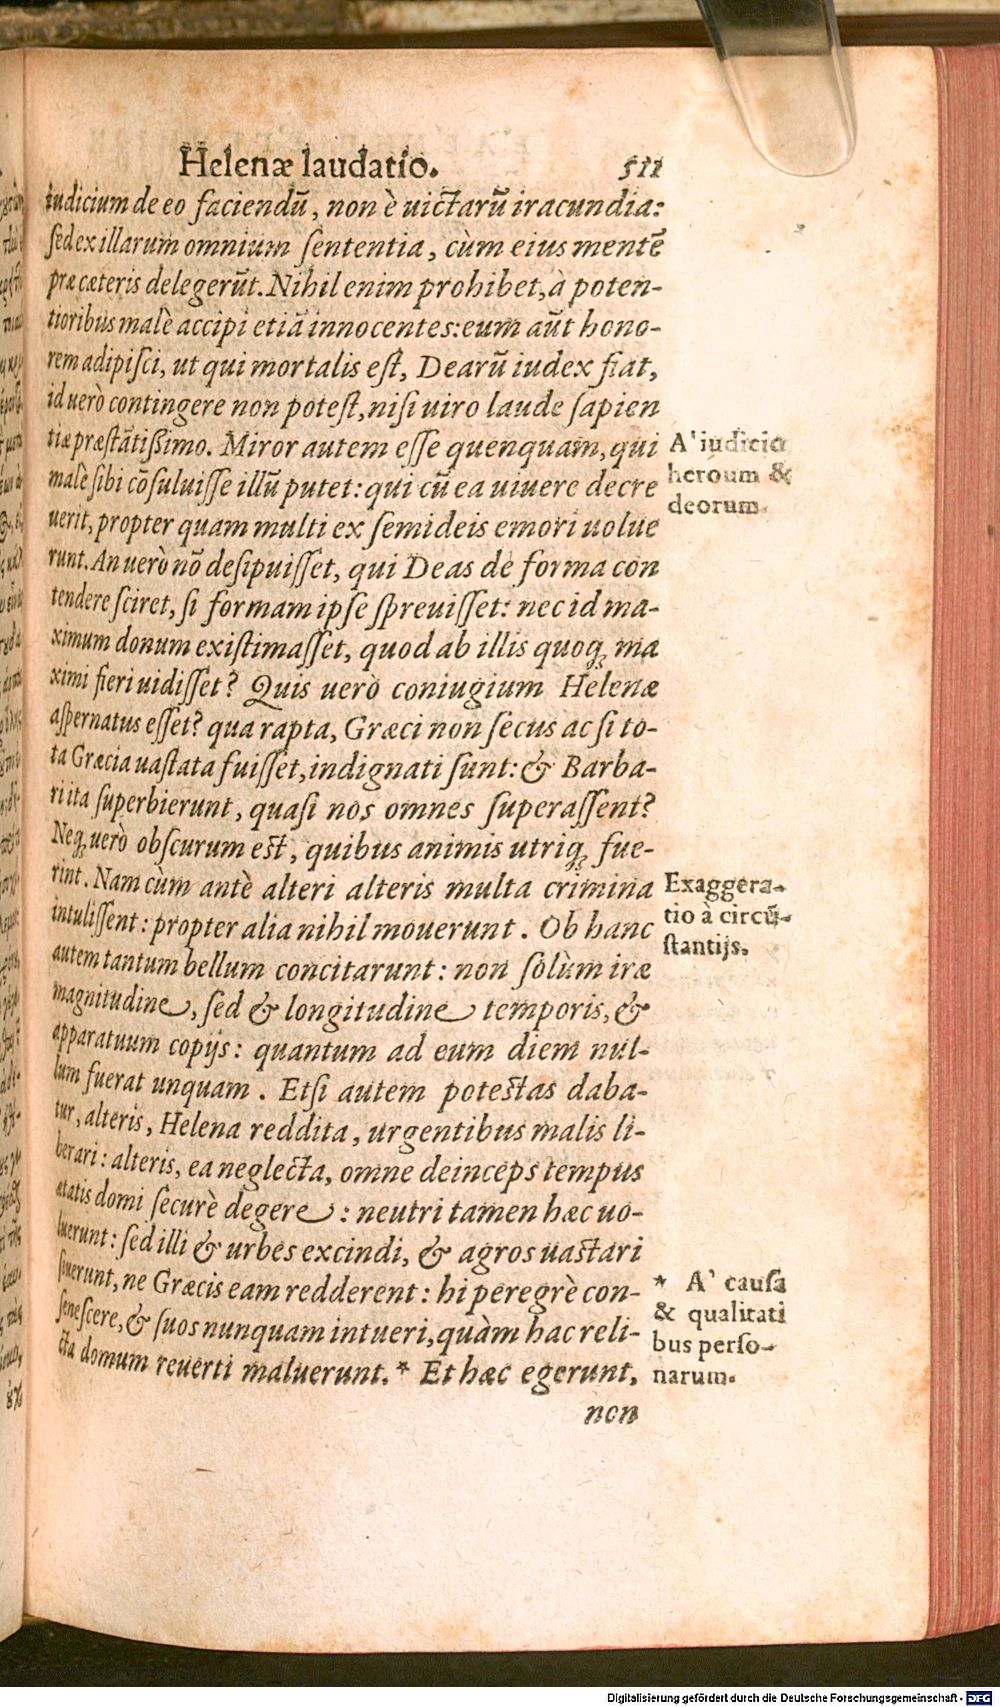 Helenæ laudatio. 511
iudicium de eo faciendũ, non è uictarũ iracundia:
sed ex illarum omnium sententia, cùm eius mentẽ
præ cæteris delegerũt. Nihil enim prohibet, à poten-
tioribus malè accipi etiã innocentes: eum aũt hono-
rem adipisci, ut qui mortalis est, Dearũ iudex fiat,
id uerò contingere non potest, nisi uiro laude sapien
tiæ præstãtißimo. Miror autem esse quenquam, qui
malè sibi cõsuluisse illũ putet: qui cũ ea uiuere decre
uerit, propter quam multi ex semideis emori uolue
runt. An uerò nõ desipuisset, qui Deas de forma con
tendere sciret, si formam ipse spreuisset: nec id ma-
ximum donum existimasset, quod ab illis quoq; ma
ximi fieri uidisset? Quis uerò coniugium Helenæ
aspernatus esset? qua rapta, Græci non secus ac si to-
ta Græcia uastata fuisset, indignati sunt: & Barba-
ri ita superbierunt, quasi nos omnes superassent?
Neq; uerò obscurum est, quibus animis utriq; fue-
rint. Nam cùm antè alteri alteris multa crimina
intulissent: propter alia nihil mouerunt. Ob hanc
autem tantum bellum concitarunt: non solùm iræ
magnitudine, sed & longitudine temporis, &
apparatuum copijs: quantum ad eum diem nul-
lum fuerat unquam. Etsi autem potestas daba-
tur, alteris, Helena reddita, urgentibus malis li-
berari: alteris, ea neglecta, omne deinceps tempus
ætatis domi securè degere: neutri tamen hæc uo-
luerunt: sed illi & urbes excindi, & agros uastari
siuerunt, ne Græcis eam redderent: hi peregrè con-
senescere, & suos nunquam intueri, quàm hac reli-
cta domum reuerti maluerunt. * Et hæc egerunt,
non
A' iudicio
heroum &
deorum.
Exaggera-
tio à circũ-
stantijs.
* A' causa
& qualitati
bus perso-
narum.
Digitalisierung gefördert durch die Deutsche Forschungsgemeinschaft - DFG